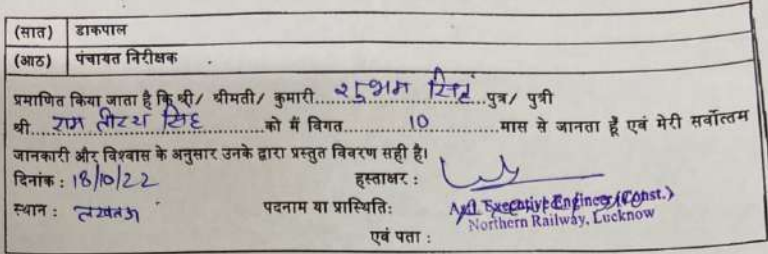 (सात) डाकपाल
(आठ) पंचायत निरीक्षक
प्रमाणित किया जाता है कि श्री/ श्रीमती/ कुमारी....शुभम सिंह....पुत्र/ पुत्री
श्री....राम तीरथ सिंह....को मैं विगत....10....मास से जानता हूँ एवं मेरी सर्वोत्तम
जानकारी और विश्वास के अनुसार उनके द्वारा प्रस्तुत विवरण सही है।
दिनांक : 18/10/22 हस्ताक्षर :
स्थान : लखनऊ पदनाम या प्रास्थिति: Executive Engineer (Const.)
Northern Railway, Lucknow
एवं पता :